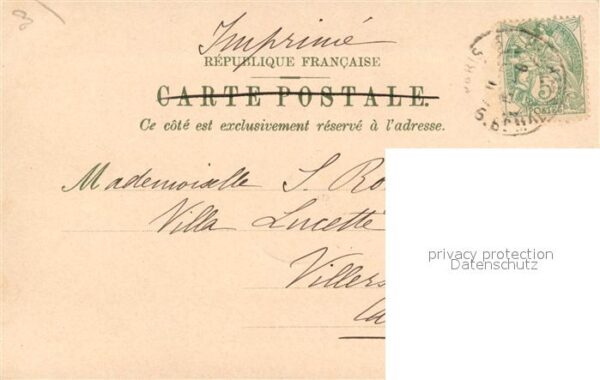 Imprimé
RÉPUBLIQUE FRANÇAISE
CARTE POSTALE.
Ce côté est exclusivement réservé à l'adresse.
Mademoiselle S. Ro
Villa Lucette
Villers
privacy protection
Datenschutz